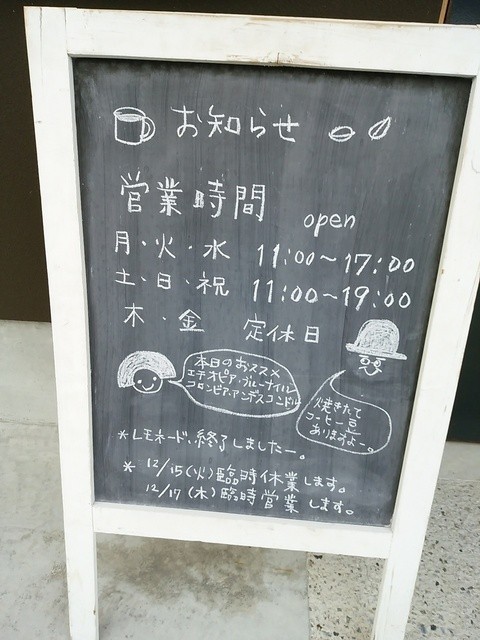 お知らせ
営業時間 open
月・火・水 11:00～17:00
土・日・祝 11:00～19:00
木・金 定休日
本日のおススメ
エチオピア・ブルーナイル
コロンビア・アンデスコンドル
焼きたて
コーヒー豆
ありますよー。
*レモネード、終了しましたー。
* 12/15(火)臨時休業します。
12/17(木)臨時営業します。